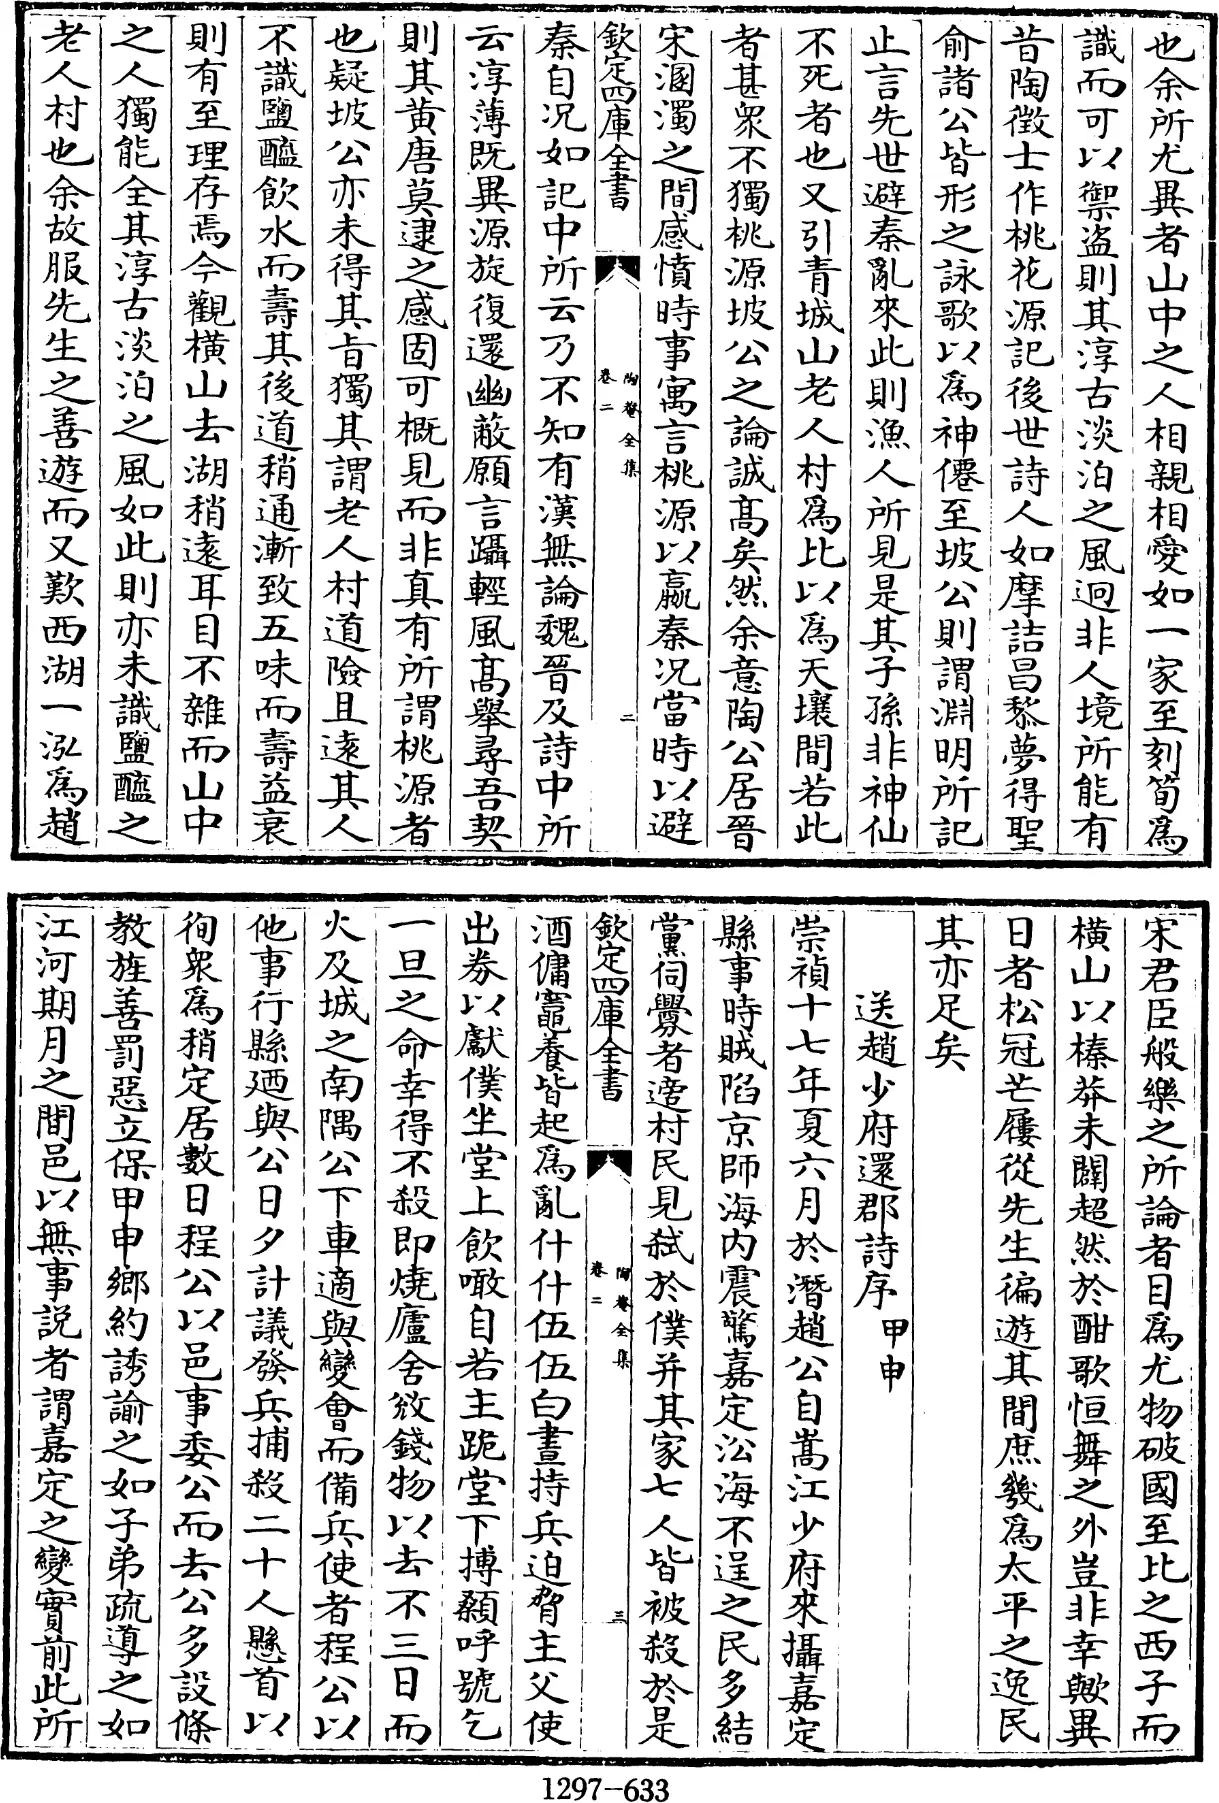 也余所尤異者山中之人相親相愛如一家至刻筍為
識而可以禦盗則其淳古淡泊之風迥非人境所能有
昔陶徵士作桃花源記後世詩人如摩詰昌黎夢得聖
俞諸公皆形之詠歌以為神僊至坡公則謂淵明所記
止言先世避秦亂來此則漁人所見是其子孫非神仙
不死者也又引青城山老人村為比以為天壤間若此
者甚衆不獨桃源坡公之論誠高矣然余意陶公居晉
宋溷濁之間感憤時事寓言桃源以嬴秦況當時以避
欽定四庫全書
陶菴全集
卷二
二
秦自况如記中所云乃不知有漢無論魏晉及詩中所
云淳薄既異源旋復還幽蔽願言躡輕風高舉尋吾契
則其黄唐莫逮之感固可概見而非真有所謂桃源者
也疑坡公亦未得其旨獨其謂老人村道險且遠其人
不識鹽醯飲水而壽其後道稍通漸致五味而壽益衰
則有至理存焉今觀橫山去湖稍遠耳目不雜而山中
之人獨能全其淳古淡泊之風如此則亦未識鹽醯之
老人村也余故服先生之善遊而又歎西湖一泓為趙
宋君臣般樂之所論者目為尤物破國至比之西子而
橫山以榛莽未闢超然於酣歌恒舞之外豈非幸歟異
日者松冠芒屨從先生徧遊其間庶幾為太平之逸民
其亦足矣
送趙少府還郡詩序 甲申
崇禎十七年夏六月於潛趙公自嵩江少府來攝嘉定
縣事時賊陷京師海内震驚嘉定沿海不逞之民多結
黨伺釁者遶村民見弑於僕并其家七人皆被殺於是
欽定四庫全書
陶菴全集
卷二
三
酒傭竈養皆起為亂什什伍伍白晝持兵迫脅主父使
出券以獻僕坐堂上飲噉自若主跪堂下搏顙呼號乞
一旦之命幸得不殺即燒廬舍斂錢物以去不三日而
火及城之南隅公下車適與變會而備兵使者程公以
他事行縣廼與公日夕計議發兵捕殺二十人懸首以
徇衆為稍定居數日程公以邑事委公而去公多設條
教旌善罰惡立保甲申鄉約誘諭之如子弟疏導之如
江河期月之間邑以無事説者謂嘉定之變實前此所
1297-633